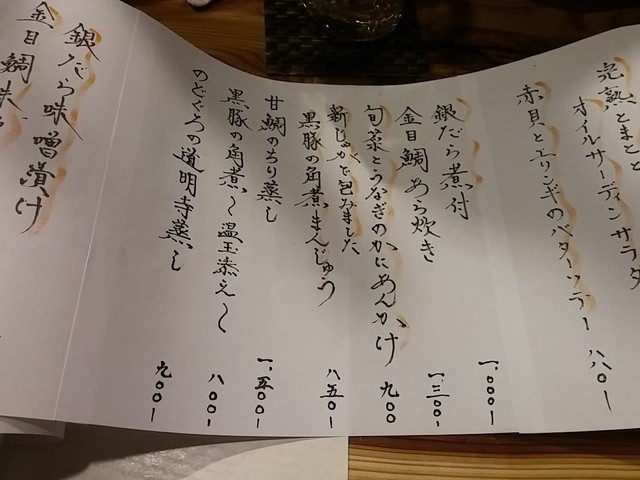 完熟とまとと
オイルサーディンサラダ
赤貝とエリンギのバターソテー 八八〇ー
銀だら煮付 一、〇〇〇ー
金目鯛あら炊き 一、三〇〇ー
旬菜とうなぎのかにあんかけ 九〇〇
新じゃがで包みました
黒豚の角煮まんじゅう 八五〇ー
甘鯛のちり蒸し 一、五〇〇ー
黒豚の角煮〜温玉添え〜 八〇〇ー
のどぐろの道明寺蒸し 九〇〇ー
銀だら味噌漬け
金目鯛味